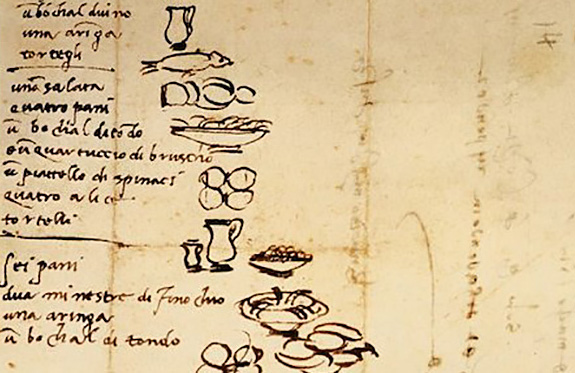 ū bochal dvino
una aringa
tortegli
una salata
quatro pani
ū bochal di tōdo
e ū quartuccio di bruscho
ū piattello di spinaci
quatro alice
tortelli
sei pani
dua minestre di finochio
una aringa
ū bochal di tondo